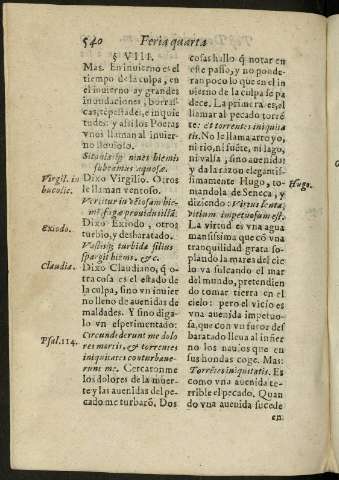 540 Feria quarta
§ VIII.
Mas. En inuierno es el
tiempo de la culpa, en
el inuierno ay grandes
inundaciones, borras-
cas, tẽpestades, e inquie
tudes: y assi los Poetas
vnos llaman al inuier
no lluuioso.
hiemis
subrimus aquosæ.
Dixo Virgilio. Otros
le llaman ventoso.
Vertitur in
Dixo Exiodo, otros
turbio, y desbaratado.
turbida
spargit hiems. &c.
Dixo Claudiano, q̃ o-
tra cosa es el estado de
la culpa, sino vn inuier
no lleno de auenidas de
maldades. Y sino diga-
lo vn esperimentado:
Circundederunt me dolo
res mortis, & torrentes
iniquitatis conturbaue-
runt me. Cercaronme
los dolores de la muer-
te y las auenidas del pe-
cado me turbarõ. Dos
Virgil. in
bucolic.
Exiodo.
Claudia.
Psal. 114.
cosas hallo q̃ notar en
este passo, y no ponde-
ran poco lo que en el in
uierno de la culpa se pa
dece. La primera es, el
llamar al pecado torrẽ-
te: et torrentes iniquita
tis. No le llama arroyo,
ni rio, ni fuẽte, ni lago,
ni valsa, sino auenidas
y da la razon elegantis-
simamente Hugo, to-
mandola de Seneca, y
diziendo: Virtus lenta,
vitium impetuosum est.
La virtud es vna agua
mansissima que cõ vna
tranquilidad grata so-
plando la marea del cie
lo va sulcando el mar
del mundo, pretendien
do tomar tierra en el
cielo: pero el vicio es
vna auenida impetuo-
sa, que con vn furor des
baratado lleua al infier
no los nauios que en
sus hondas coge. Mas:
Torrẽtes iniquitatis. Es
como vna auenida te-
rrible el pecado. Quan
do vna auenida sucede
en
Hugo.